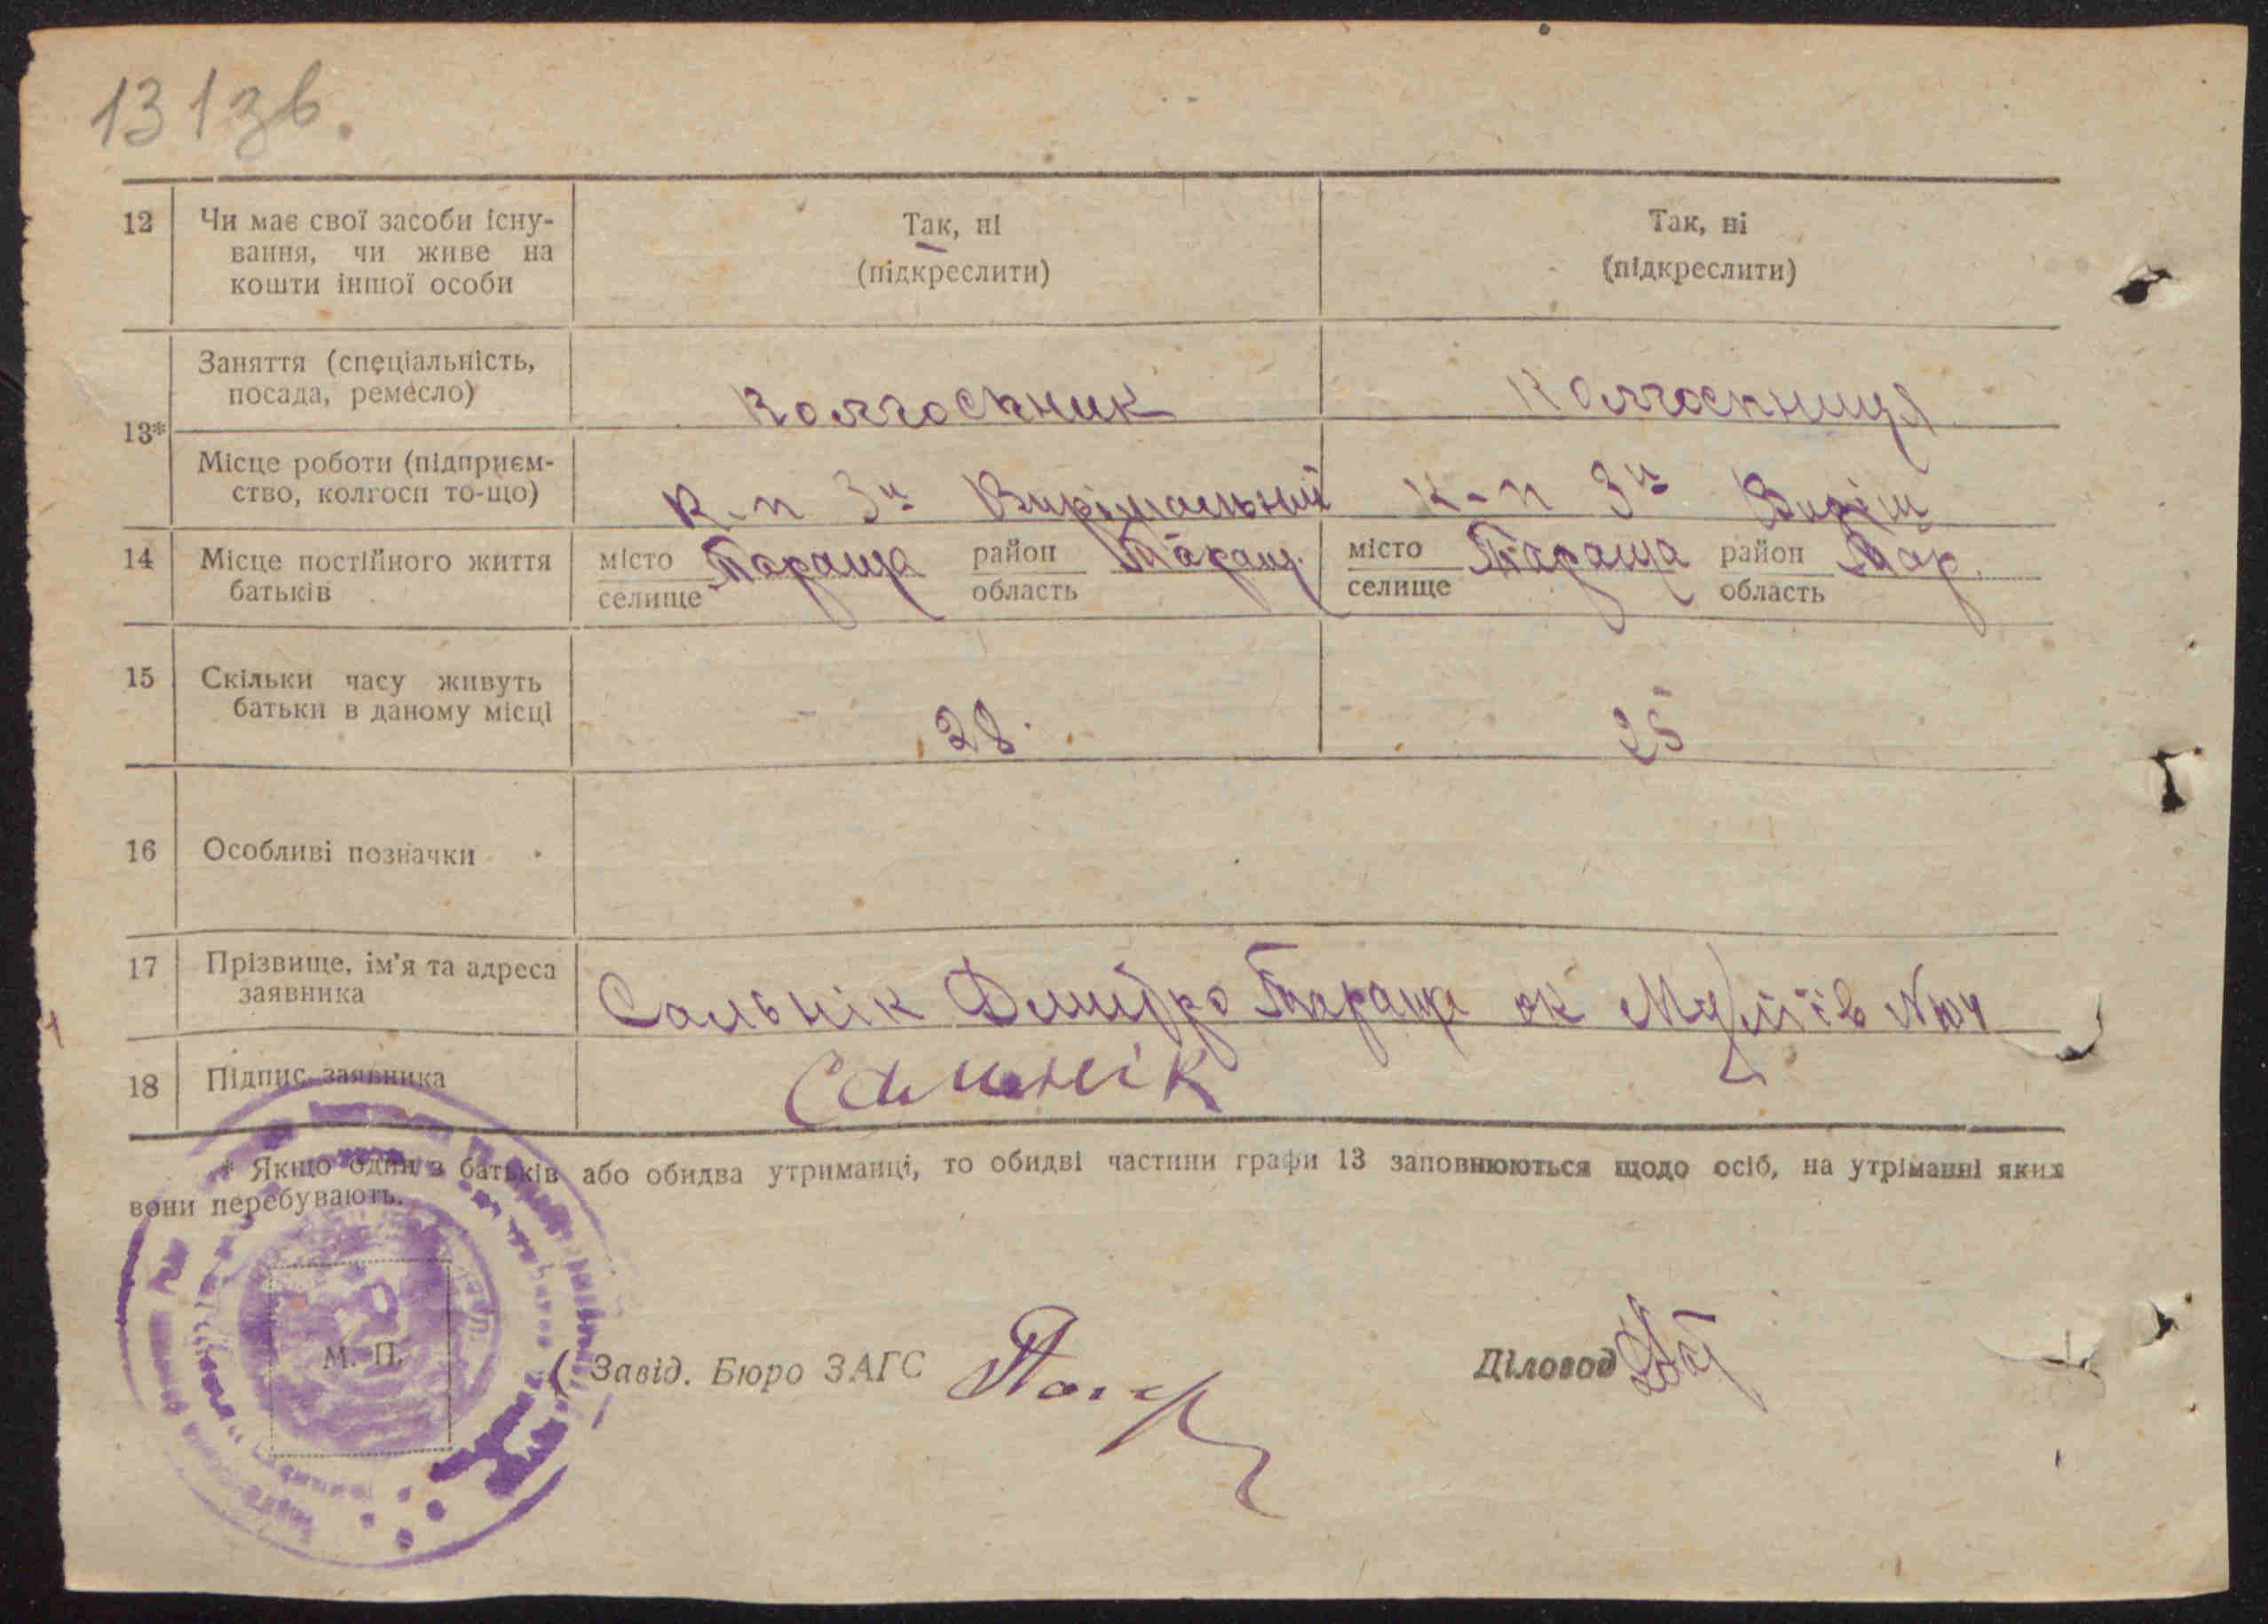 131зв.
12 Чи має свої засоби існу- Так, ні Так, ні
вання, чи живе на (підкреслити) (підкреслити)
кошти іншої особи
Заняття (спеціальність,
посада, ремесло) Колгоспник Колгоспниця
13*
Місце роботи (підприєм-
ство, колгосп то-що) К-п 3й Вирішальний К-п 3й Виріш
14 Місце постійного життя місто Тараща район Таращ. місто Тараща район Тар.
батьків селище область селище область
15 Скільки часу живуть
батьки в даному місці 28. 25
16 Особливі позначки
17 Прізвище, ім'я та адреса
заявника Сальнік Дмитро Тараща ок
18 Підпис заявника Сальнік
* Якщо один з батьків або обидва утриманці, то обидві частини графи 13 заповнюються щодо осіб, на утріманні яких
вони перебувають.
М. П.
Завід. Бюро ЗАГС Діловод